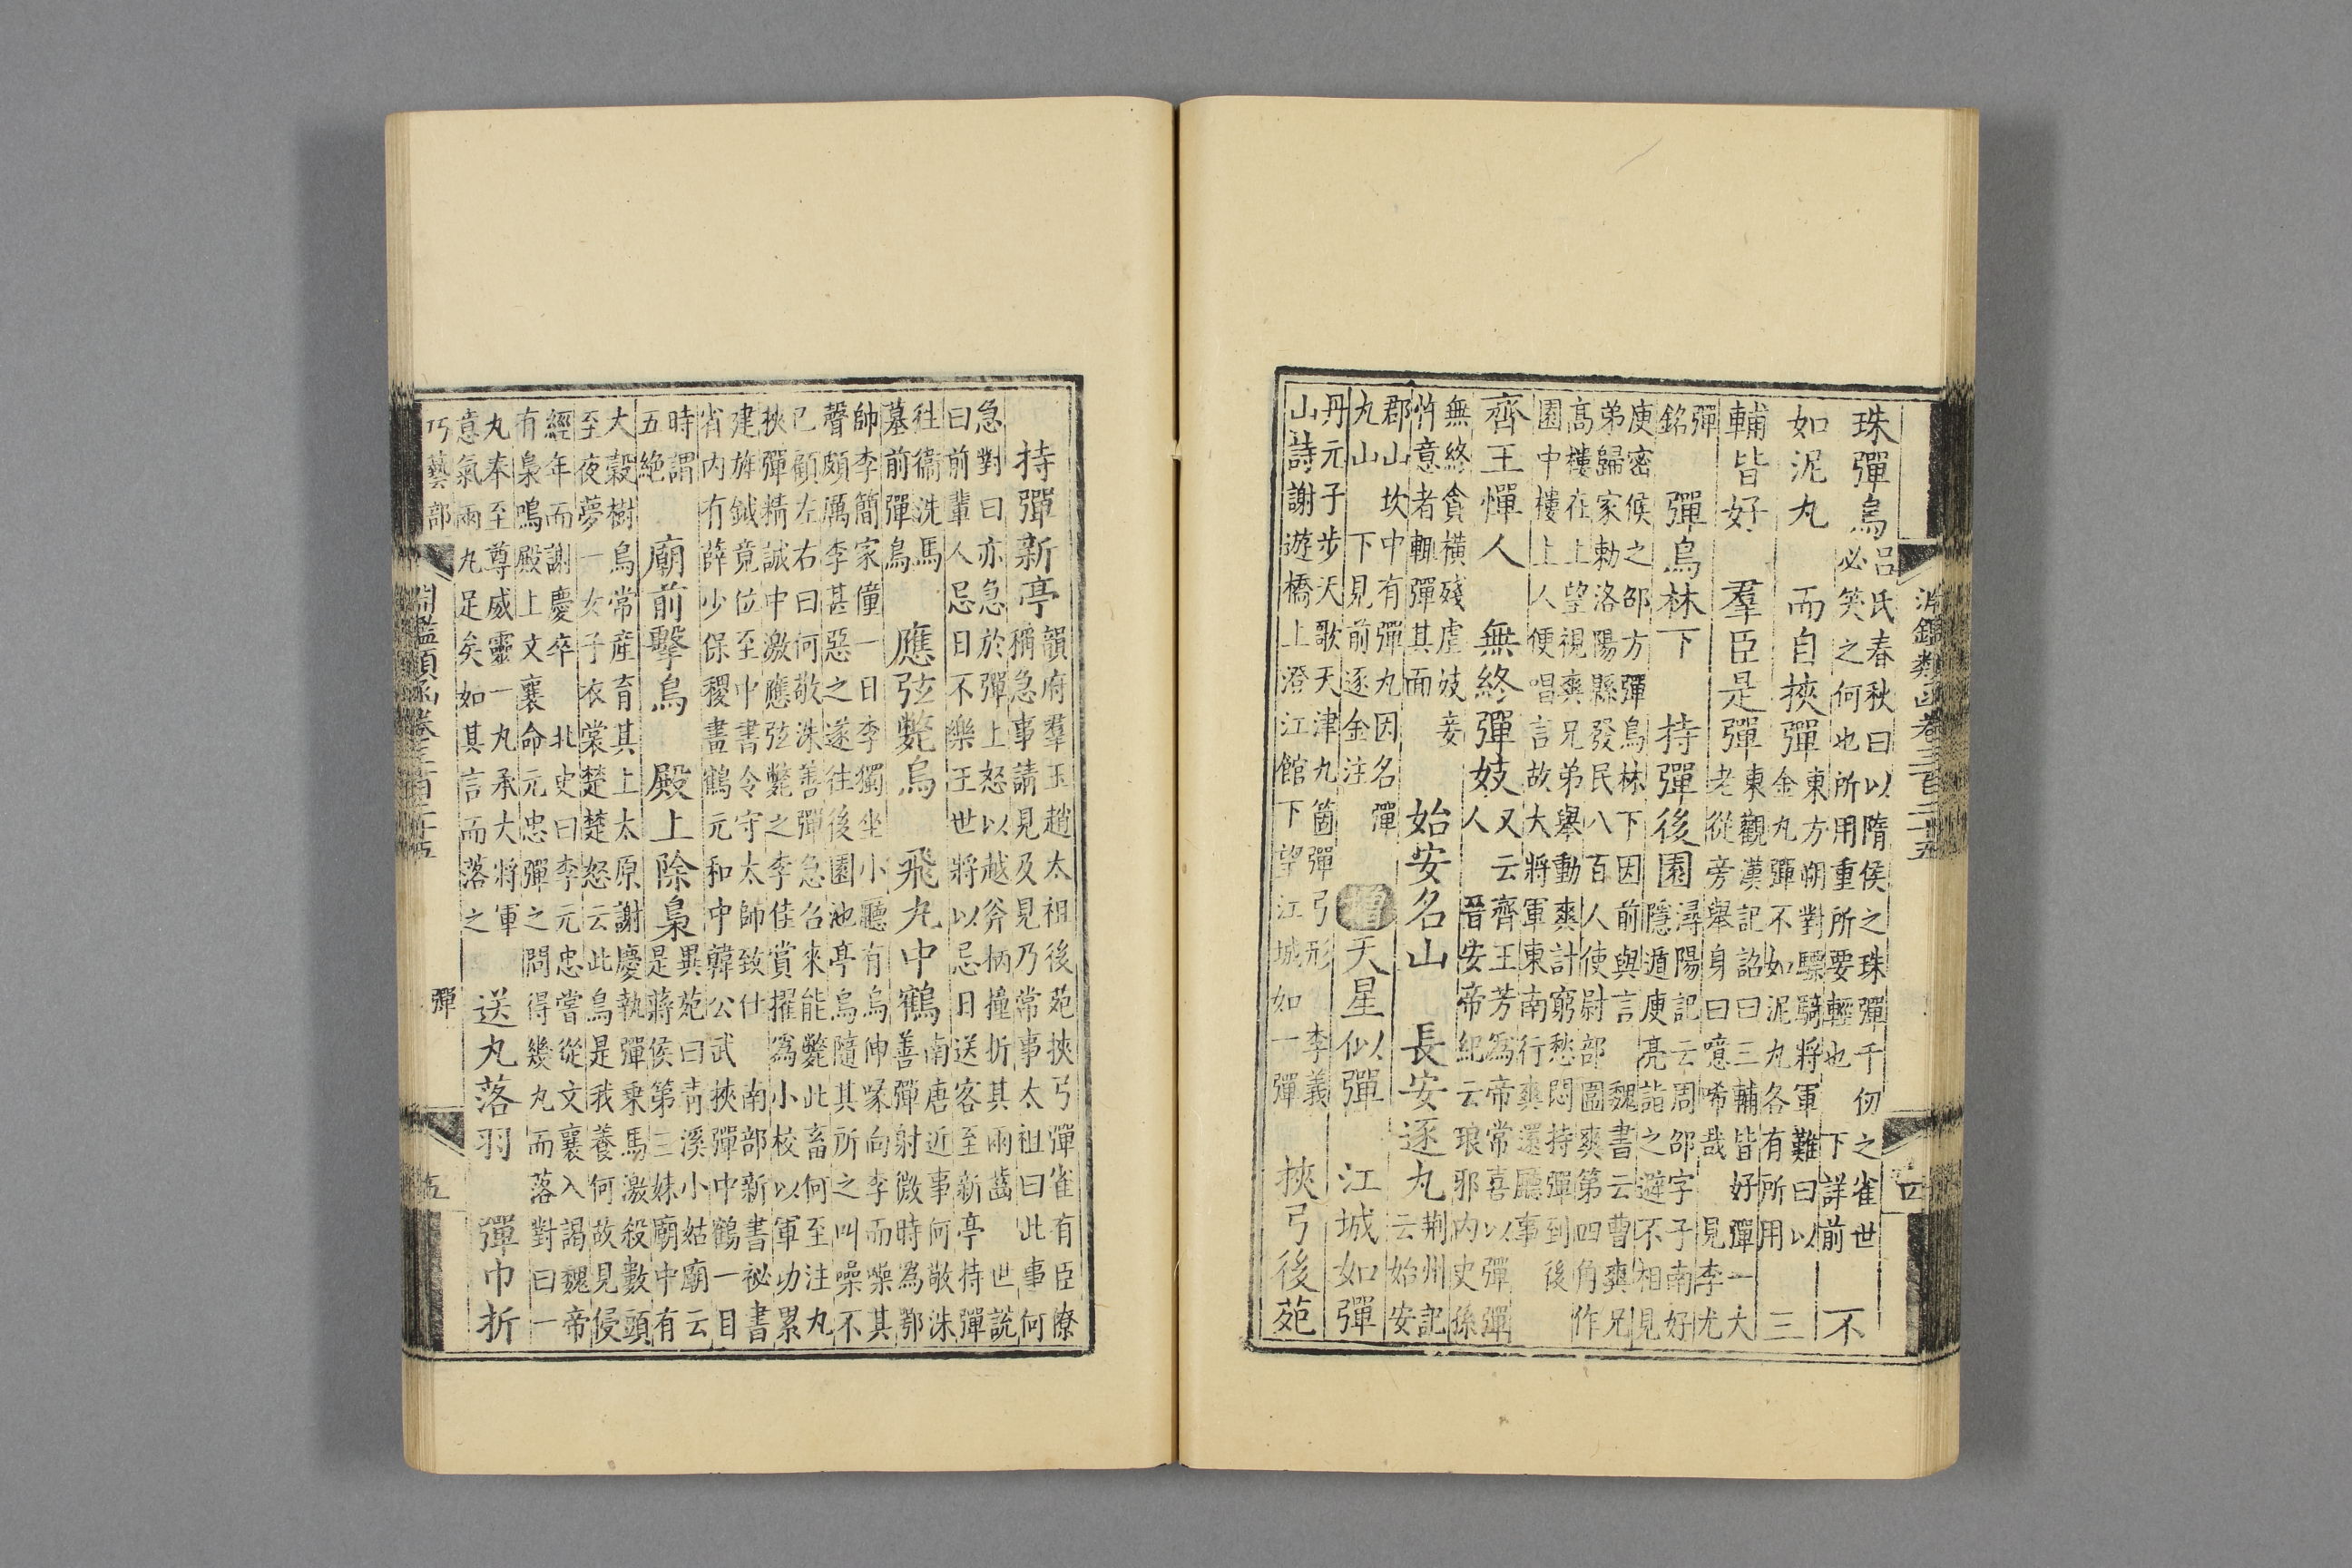 淵鑑類函卷三百二十五 十四
珠彈鳥
呂氏春秋曰以隋侯之珠彈千仞之雀世
必笑之何也所用重所要輕也 下詳前
不
如泥丸 而自挾彈
東方朔對驃騎將軍難曰以
金丸彈不如泥丸各有所用
三
輔皆好 羣臣是彈
東觀漢記詔曰三輔皆好彈一大
老從旁舉身曰噫唏哉 見李尤
彈
銘
彈鳥林下 持彈後園
潯陽記云周邵字子南好
隱遁庾亮詣之避不相見
庾密候之邵方彈鳥林下因前與言 魏書云曹爽兄
弟歸家勅洛陽縣發民八百人使尉部圍爽第四角作
高樓在上望視爽兄弟舉動爽計窮愁悶持彈到後
園中樓上人便唱言故大將軍東南行爽還廳事
齊王憚人 無終彈妓
又云齊王芳為帝常喜以彈彈
人 晉安帝紀云琅邪内史孫
無終貪橫殘虐妓妾
忤意者輒彈其面
始安名山 長安逐丸
荆州記
云始安
郡山坎中有彈丸因名彈
丸山 下見前逐金注
增 天星似彈 江城如彈
丹元子步天歌天津九箇彈弓形 李義
山詩謝遊橋上澄江館下望江城如一彈
挾弓後苑
持彈新亭
韻府羣玉趙太祖後苑挾弓彈雀有臣僚
稱急事請見及見乃常事太祖曰此事何
急對曰亦急於彈上怒以越斧柄撞折其兩齒 世說
曰前輩人忌日不樂王世將以忌日送客至新亭持彈
往衞洗馬
墓前彈鳥
應弦斃烏 飛丸中鶴
南唐近事何敬洙
善彈射微時為鄂
帥李簡家僮一日李獨坐小廳有烏伸喙向李而噪其
聲頗厲李甚惡之遂往後園池亭烏隨其所之叫噪不
已顧左右曰何敬洙善彈急召來能斃此畜何至注丸
挾彈精誠中激應弦斃之李佳賞擢為小校以軍功累
建旄鉞竟位至中書令守太師致仕 南部新書祕書
省内有薛少保稷畫鶴元和中韓公武挾彈中鶴一目
時謂
五絶
廟前擊鳥 殿上除梟
異苑曰青溪小姑廟云
是蔣侯第三妹廟中有
大榖樹鳥常産育其上太原謝慶執彈乗馬激殺數頭
至夜夢一女子衣裳楚楚怒云此鳥是我養何故見侵
經年而謝慶卒 北史曰李元忠嘗從文襄入謁魏帝
有梟鳴殿上文襄命元忠彈之問得幾丸而落對曰一
丸奉至尊威靈一丸承大將軍
意氣兩丸足矣如其言而落之
送丸落羽 彈巾折
巧藝部 淵鑑類函卷三百二十五 彈 十五